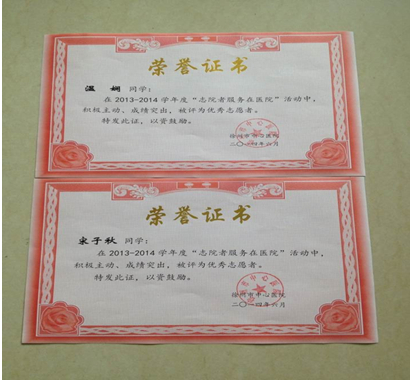 荣誉证书
温 娴 同学:
在2013-2014学年度“志院者服务在医院”活动中,
积极主动、成绩突出,被评为优秀志愿者。
特发此证,以资鼓励。
徐州市中心医院
二〇一四年六月
荣誉证书
宋子秋 同学:
在2013-2014学年度“志院者服务在医院”活动中,
积极主动、成绩突出,被评为优秀志愿者。
特发此证,以资鼓励。
徐州市中心医院
二〇一四年六月